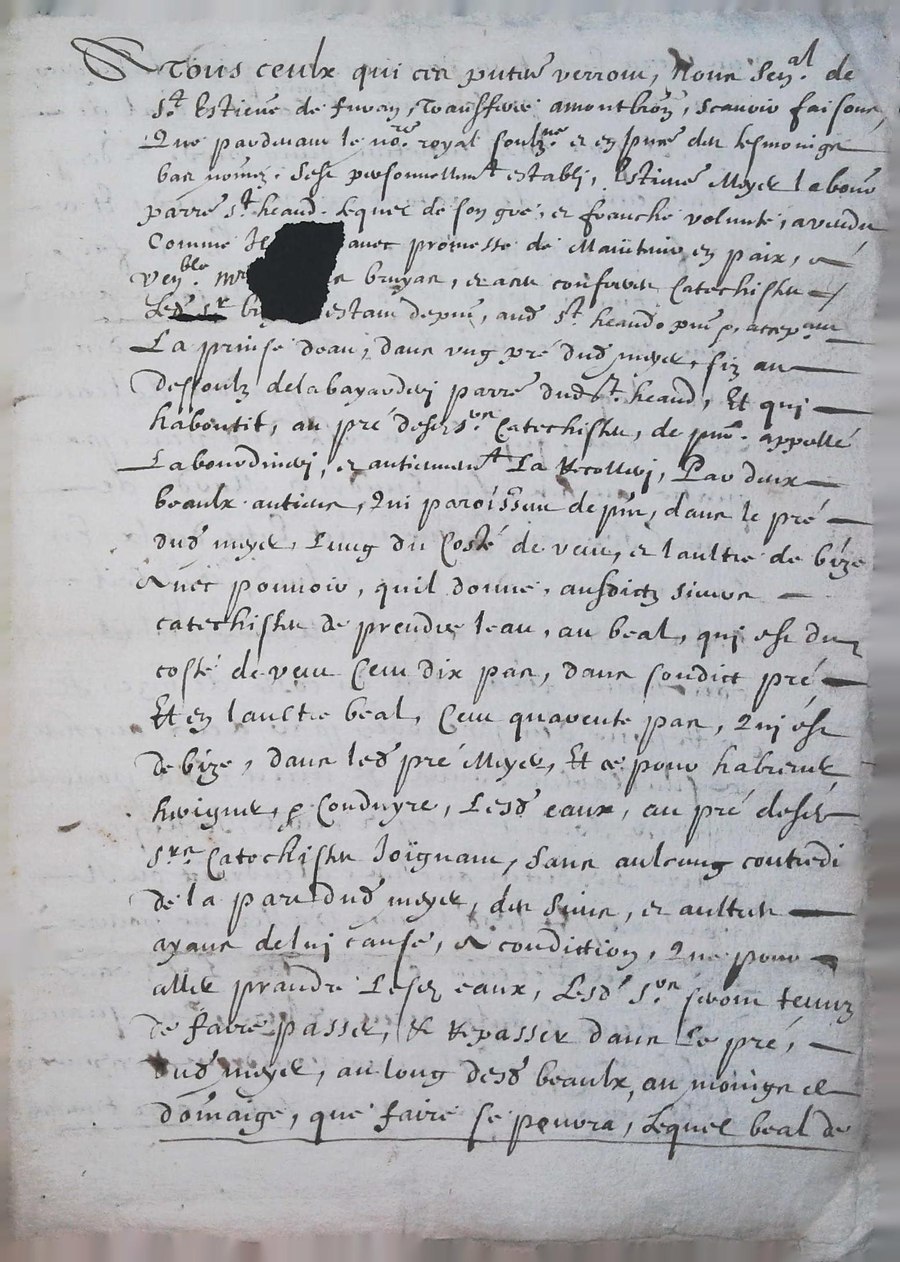 A Tous ceulx qui ces pntes verront, Nous Senal de
St Estiene de furan, Transferee a montbron, scavoir faisons,
Que pardevant le nore royal soubzne et en pnce des tesmoings
bas nomez. Sest personnellemt establi, Estiene Meyer labour
parre St heand. Lequel de son gré, et franche volunté, a vendu
Comme avec promesse de Maintenir en paix, a
Venble Mre bruyas, et aux consorces Catechistes
Ledt sr estant depnt, aud St heand pnt & acceptant
La prinse deau, dans ung pré dud meyer, siz au
dessoulz de la bayardiere parre dud St heand, Et qui
haboutit, au pré desds srs Catechistes, de pnt appellé
La bourdineri, et antienemt La Recolleri, Par deux
beaulx antiens, Qui paroissent de pnt, dans le pré
dud meyer, Lung du Costé de vent, et laultre de bize
Avec pouvoir, quil donne, ausdictz sieurs
catechistes de prendre leau, au beal, qui est du
costé de vent Cent dix pas, dans sondict pré
Et en laultre beal, Cent quarente pas, Qui est
de bize, dans led pré Meyer, Et ce pour habreuver
& Conduyre, Lesd eaux, au pré desds
srs Catechistes Joignant, Sans aulcung contredi
de la part dud meyer, des siens, et aultres
ayans de lui cause, A condittion, Que pour
aller prandre Lesd eaux, Lesd srs seront tenuz
de faire passer, & repasser dans Le pré,
dud meyer, au long desd beaulx, au moings de
domaige, que faire se pouvra, Lequel beal de